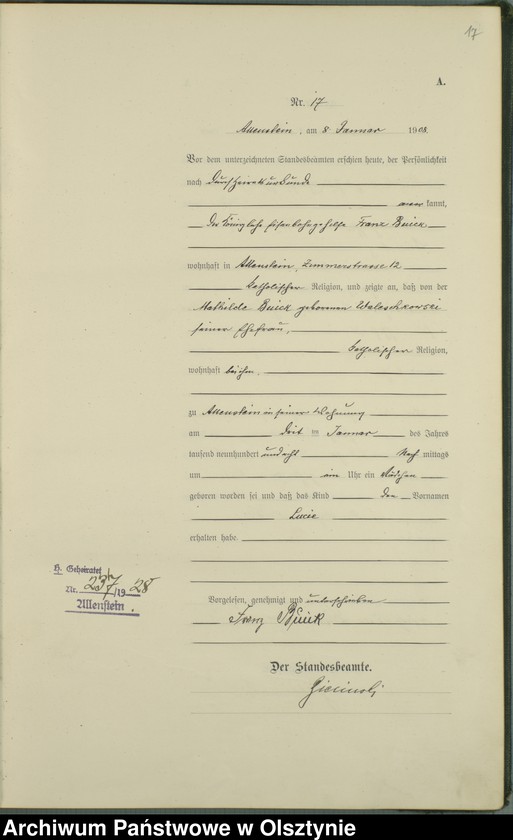 17
A.
Nr. 17
Allenstein, am 8 Januar 1908.
Vor dem unterzeichneten Standesbeamten erschien heute, der Persönlichkeit
nach durch Heiratsurkunde
kannt,
der Königliche Eisenbahngehilfe Franz Buick
wohnhaft in Allenstein, Zimmerstrasse 12
katholischer Religion, und zeigte an, daß von der
Mathilde Buick geborenen
seiner Ehefrau,
katholischer Religion,
wohnhaft bei ihm,
zu Allenstein in seiner Wohnung
am Januar des Jahres
tausend neunhundert und acht Nachmittags
um ein Uhr ein Mädchen
geboren worden sei und daß das Kind den Vornamen
Lucie
erhalten habe.
H. Geheiratet
Nr. 237/1928
Allenstein.
Vorgelesen, genehmigt und unterschrieben
Franz Buick
Der Standesbeamte.
Archiwum Państwowe w Olsztynie